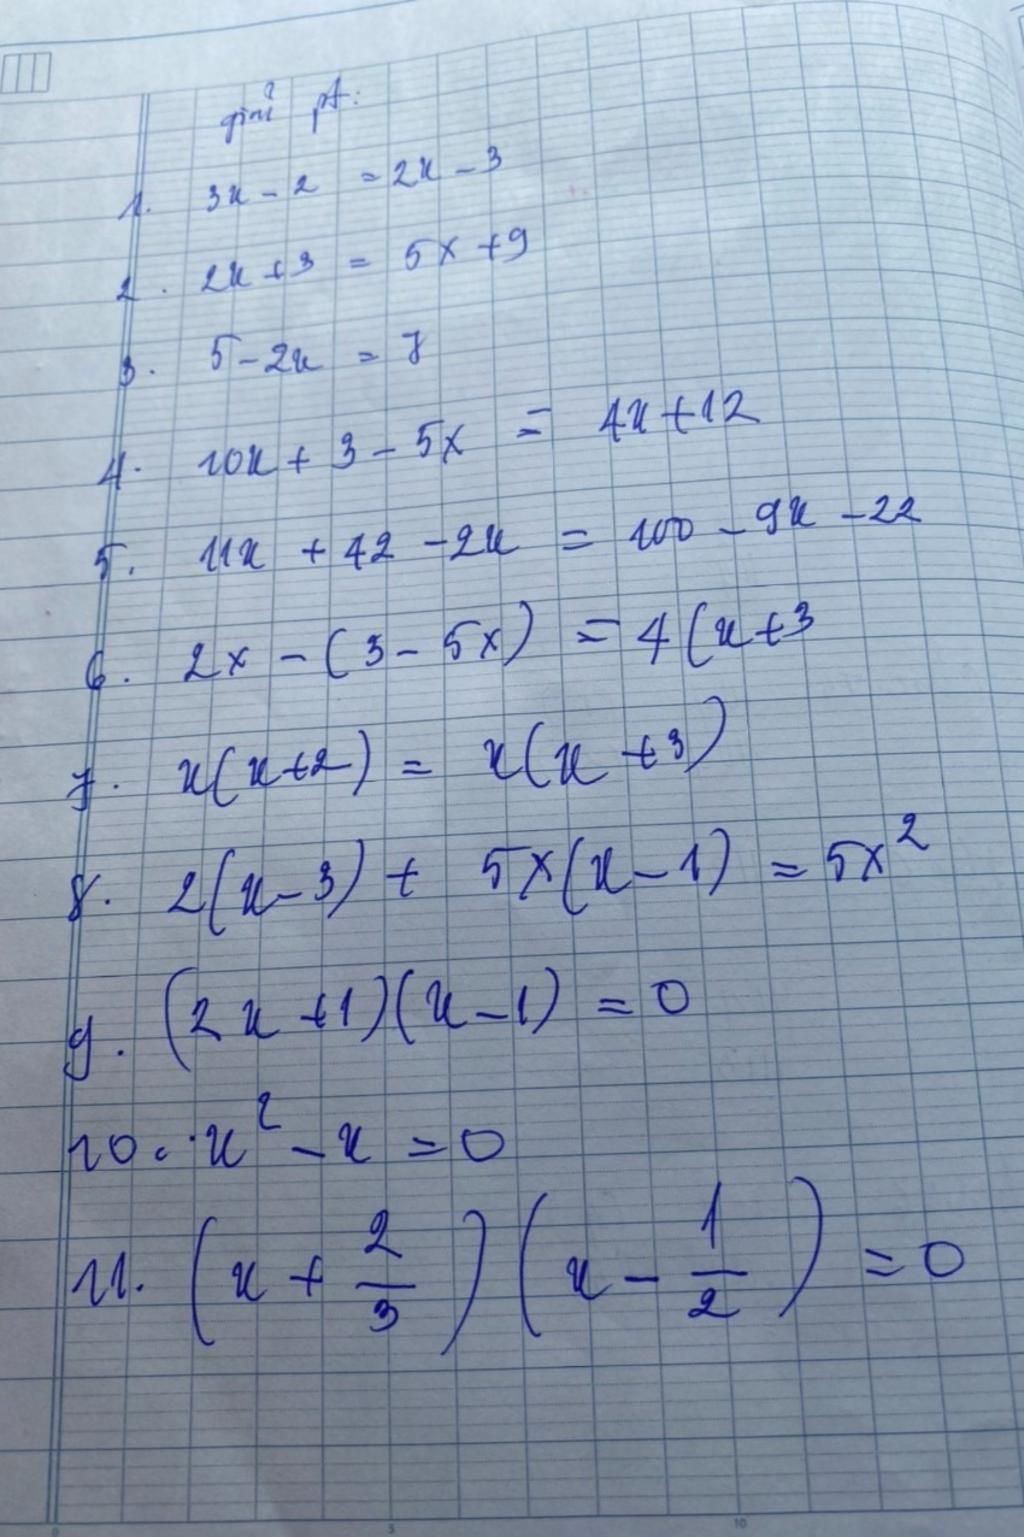 giải pt:
1. 3x - 2 = 2x - 3
2. 2x + 3 = 5x + 9
3. 5 - 2x = 7
4. 10x + 3 - 5x = 4x + 12
5. 11x + 42 - 2x = 100 - 9x - 22
6. 2x - (3 - 5x) = 4(x + 3
7. x(x + 2) = x(x + 3)
8. 2(x - 3) + 5x(x - 1) = 5x²
9. (2x + 1)(x - 1) = 0
10. x² - x = 0
11. (x + 2/3)(x - 1/2) = 0
5 10